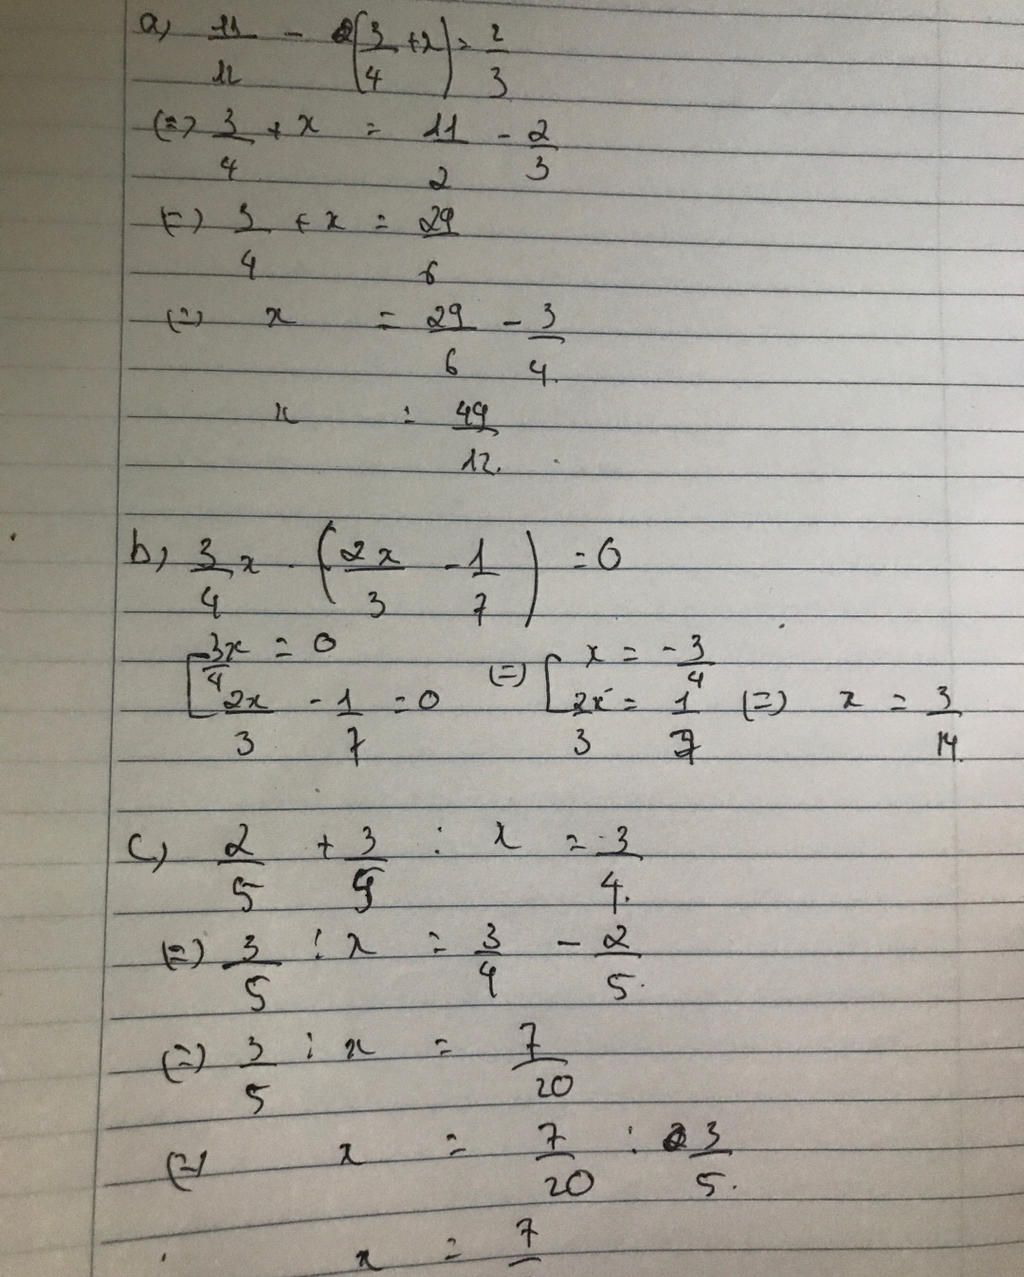 a) 11/12 - (3/4 + x) = 2/3
(=) 3/4 + x = 11/2 - 2/3
(=) 3/4 + x = 29/6
(=) x = 29/6 - 3/4
x = 49/12.
b) 3/4 x . (2x/3 - 1/7) = 0
[ 3x/4 = 0 (=) [ x = -3/4
2x/3 - 1/7 = 0 2x/3 = 1/7 (=) x = 3/14.
c) 2/5 + 3/5 : x = 3/4.
(=) 3/5 : x = 3/4 - 2/5.
(=) 3/5 : x = 7/20
(=) x = 7/20 : 3/5.
x = 7/